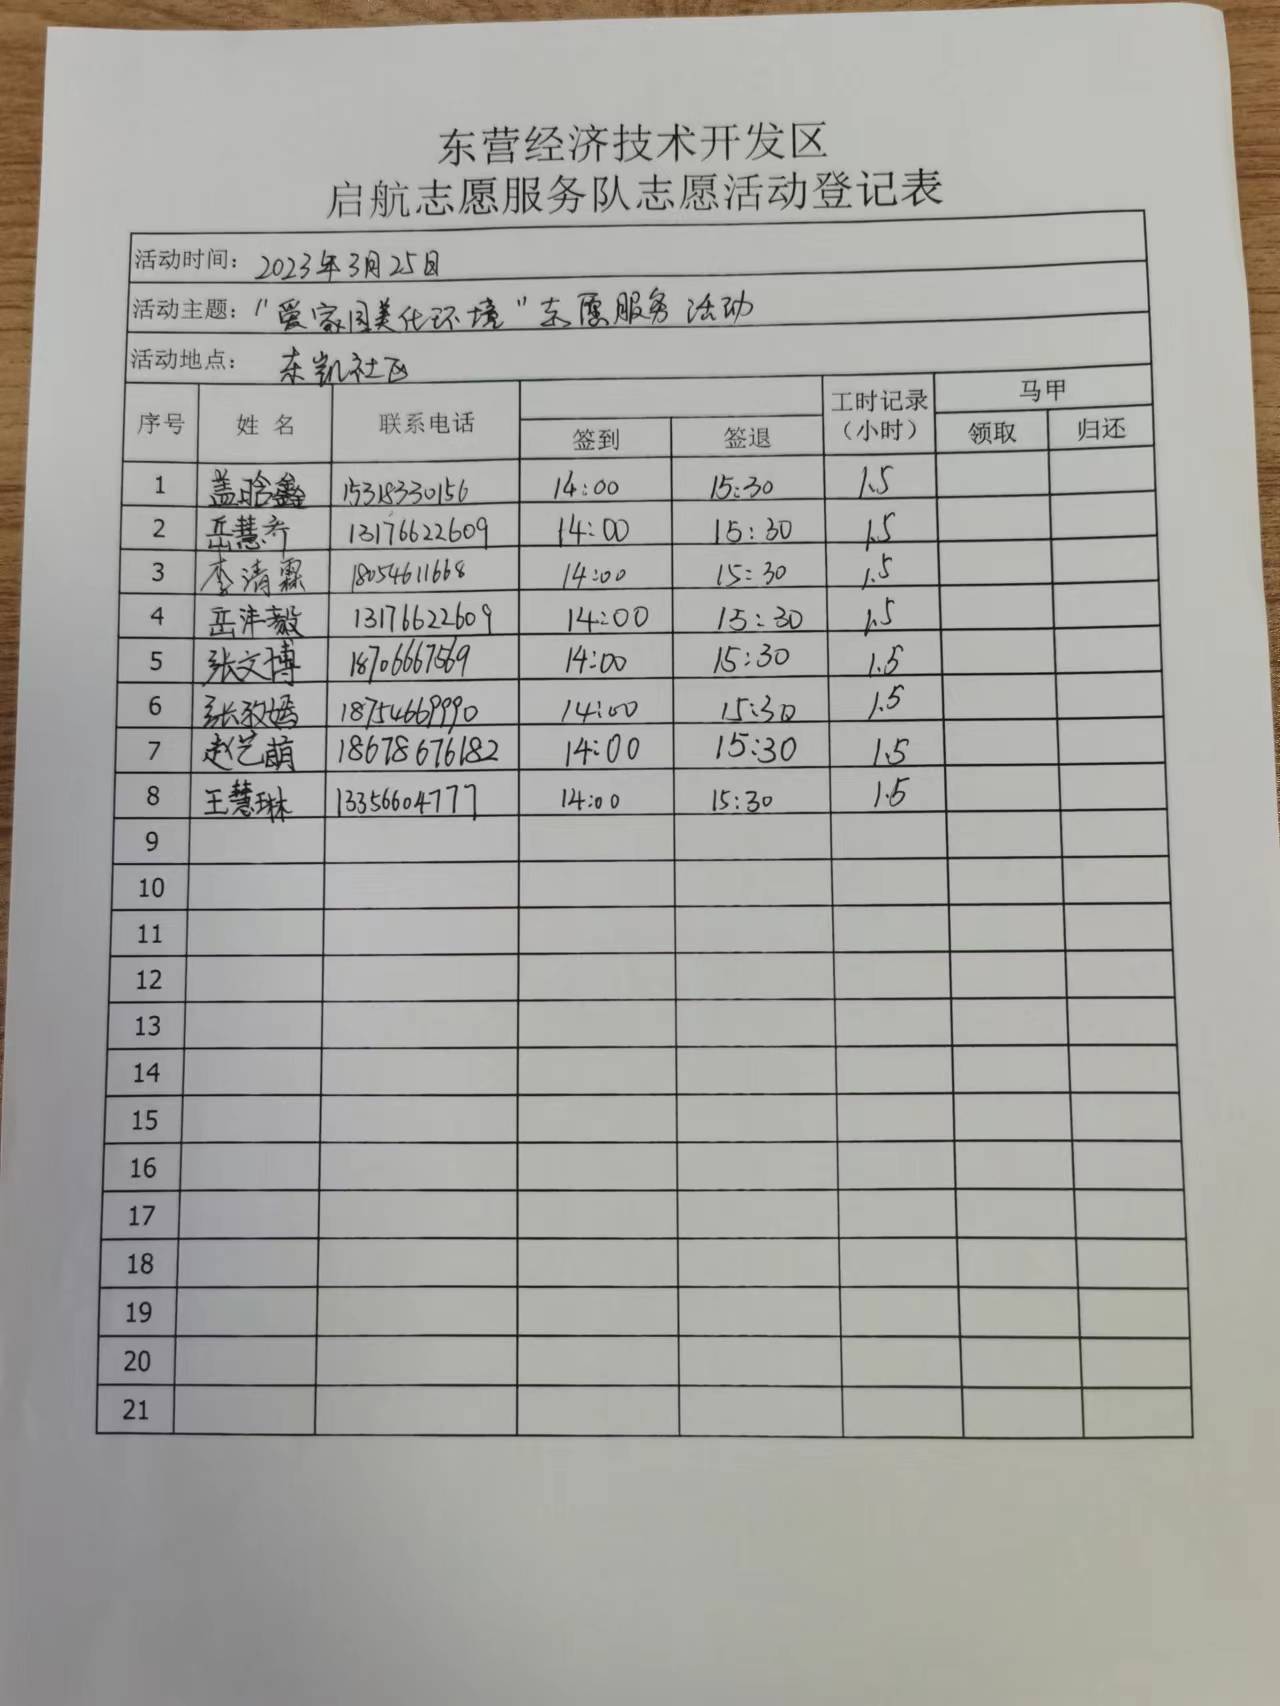 东营经济技术开发区
启航志愿服务队志愿活动登记表
活动时间：2023年3月25日
活动主题："爱家园美化环境"志愿服务活动
活动地点：东凯社区
序号 姓名 联系电话 签到 签退 工时记录（小时） 马甲 领取 归还
1 盖晗鑫 15318330156 14:00 15:30 1.5
2 岳慧乔 13176622609 14:00 15:30 1.5
3 李清霖 18054611668 14:00 15:30 1.5
4 岳沣毅 13176622609 14:00 15:30 1.5
5 张文博 18706667569 14:00 15:30 1.5
6 张敬嫣 18754669990 14:00 15:30 1.5
7 赵艺萌 18678676182 14:00 15:30 1.5
8 王慧琳 13356604777 14:00 15:30 1.5
9
10
11
12
13
14
15
16
17
18
19
20
21